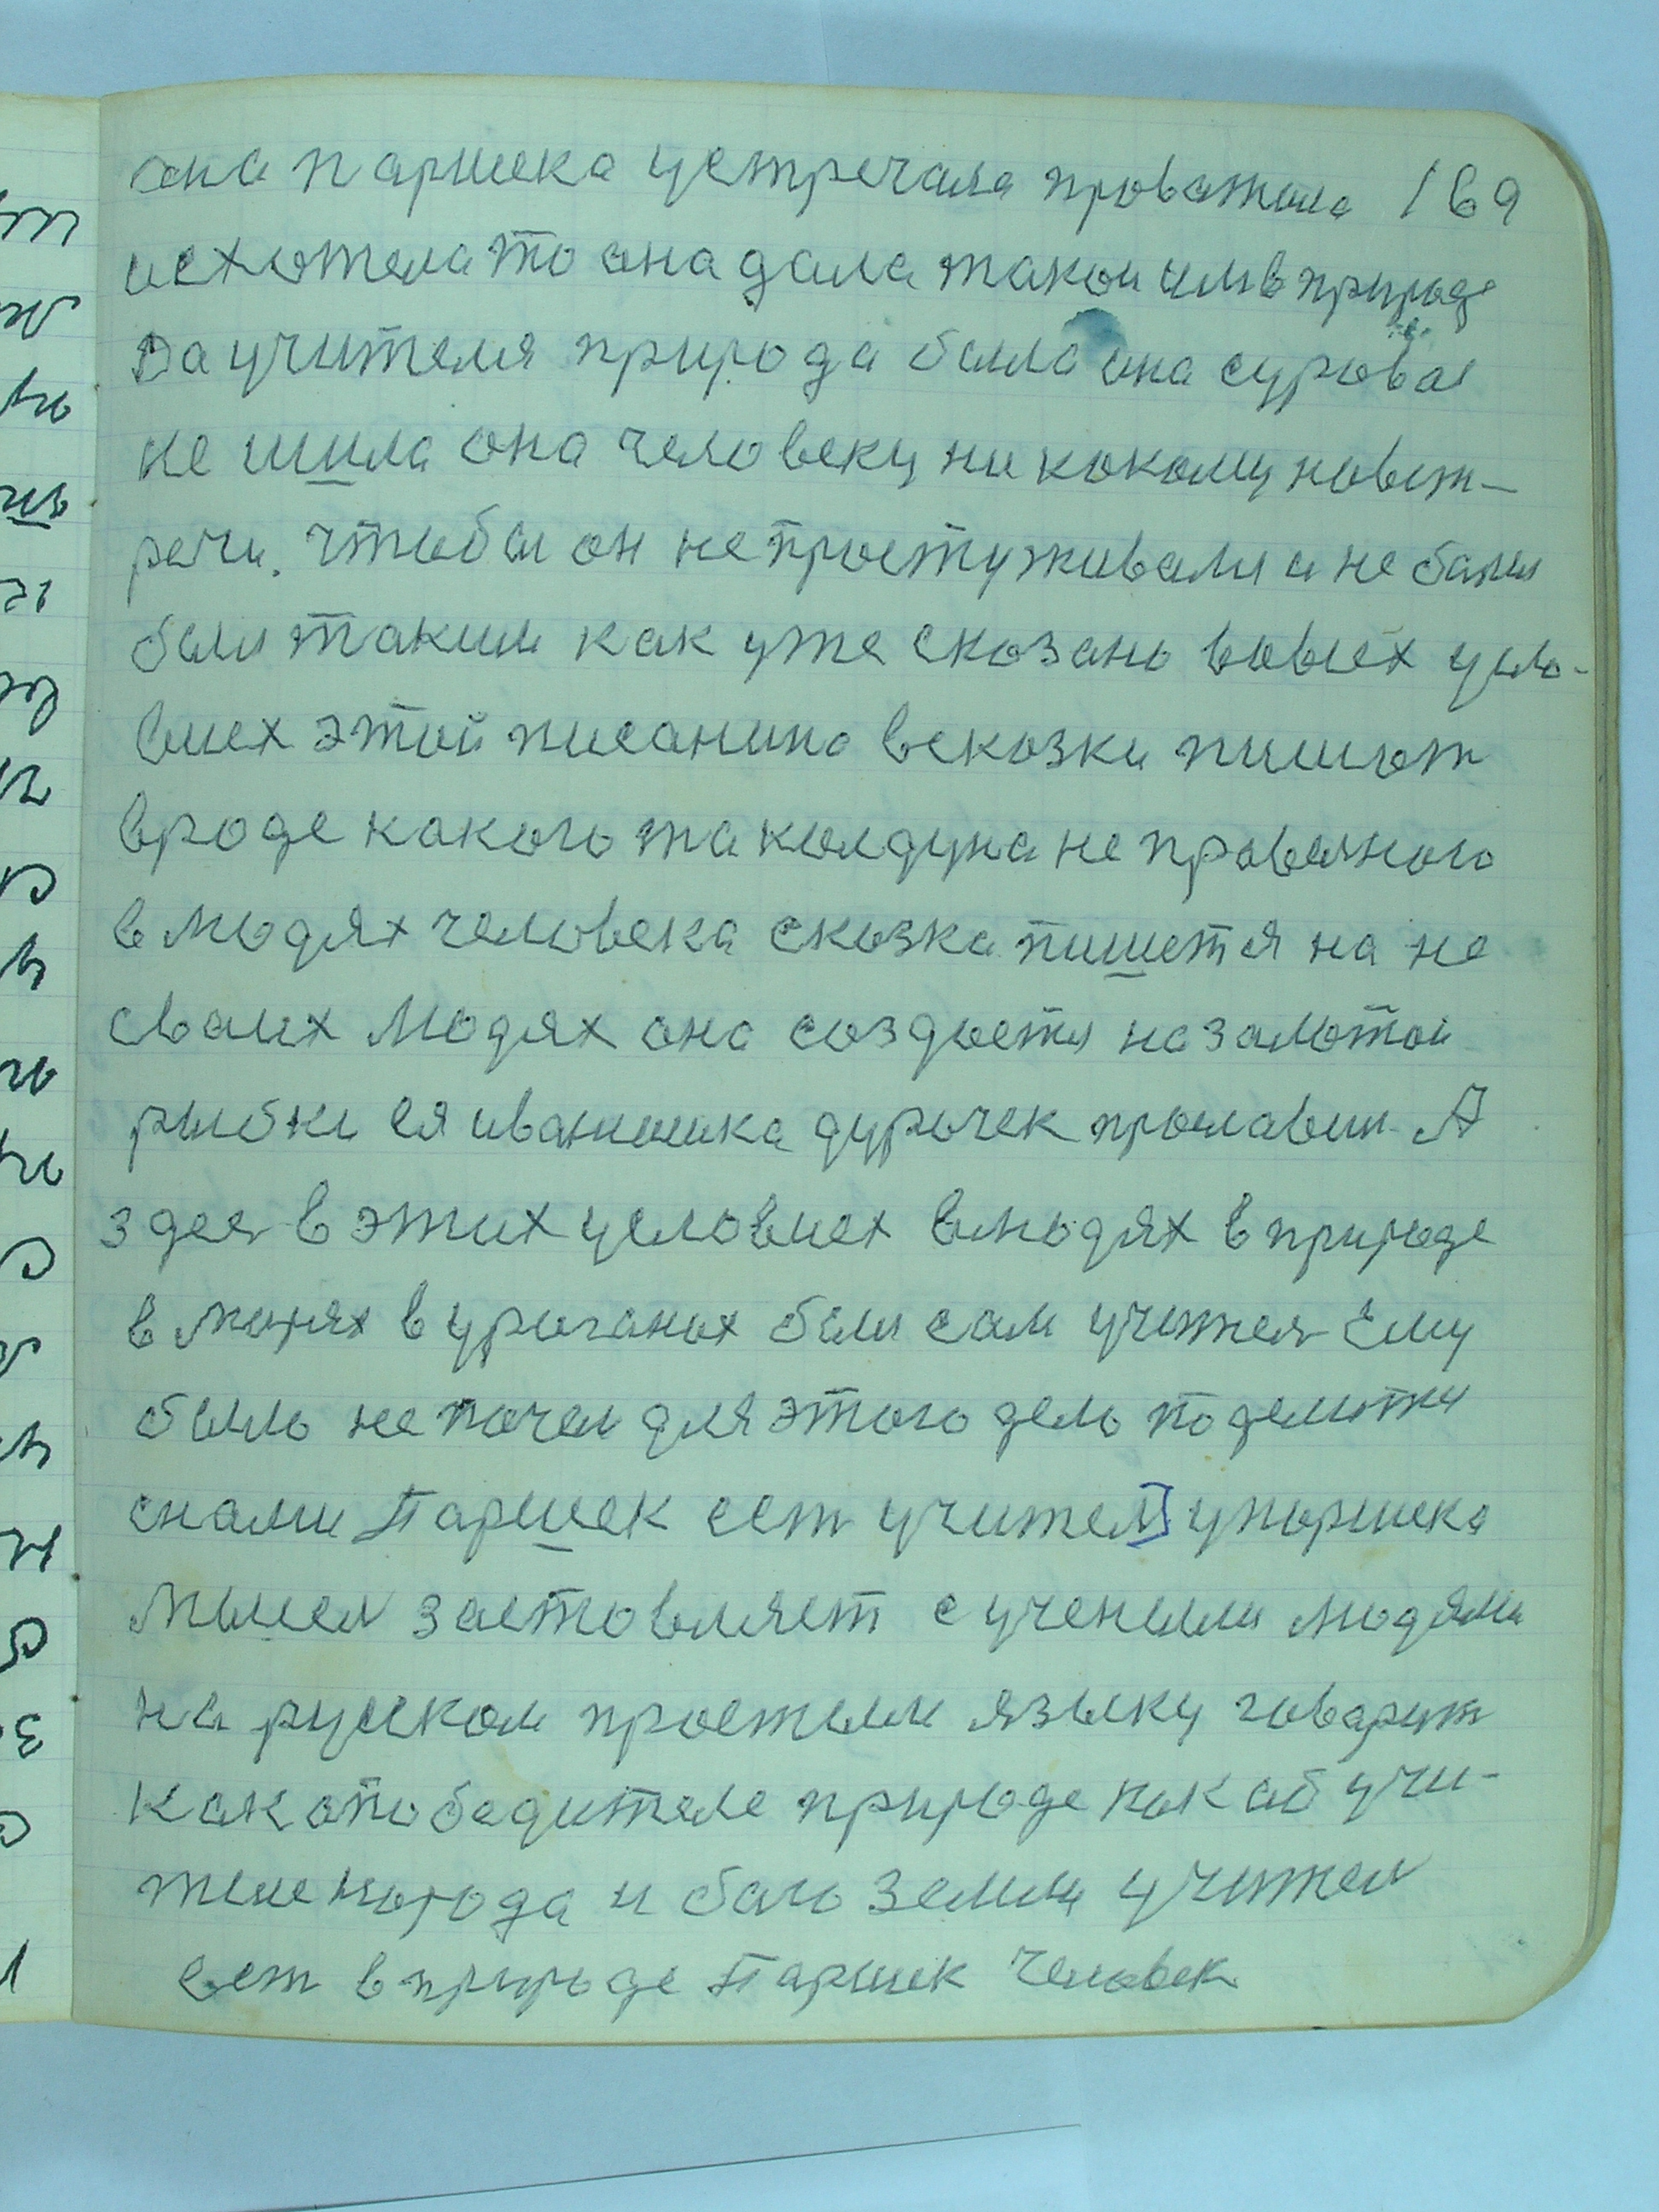 она паршека устречала проважала 169
исхотела то она дала такои им в природе
До учителя природа была она суровае
не шила она человеку ни какому навст-
речи. чтобы он не простуживали и не балел
был таким как уже сказано вовсех усло-
виех этой писанино всказки пишют
вроде какого та колдуна не правелного
в людях человека сказка пишется на не
сваих людях она создается назалотои
рыбки ея иванюшка дурочек прославил А
здес в этих условиех влюдях в природе
в морях в ураганах был сам учител Ему
было не почем для этого дело поделитки
снами Паршек ест учител упаршека
мысел заставляет с учеными людями
на руском простым языку говарит
Как опобедителе природе как об учи-
теле народа и бого земли учител
ест в природе Паршек Человек